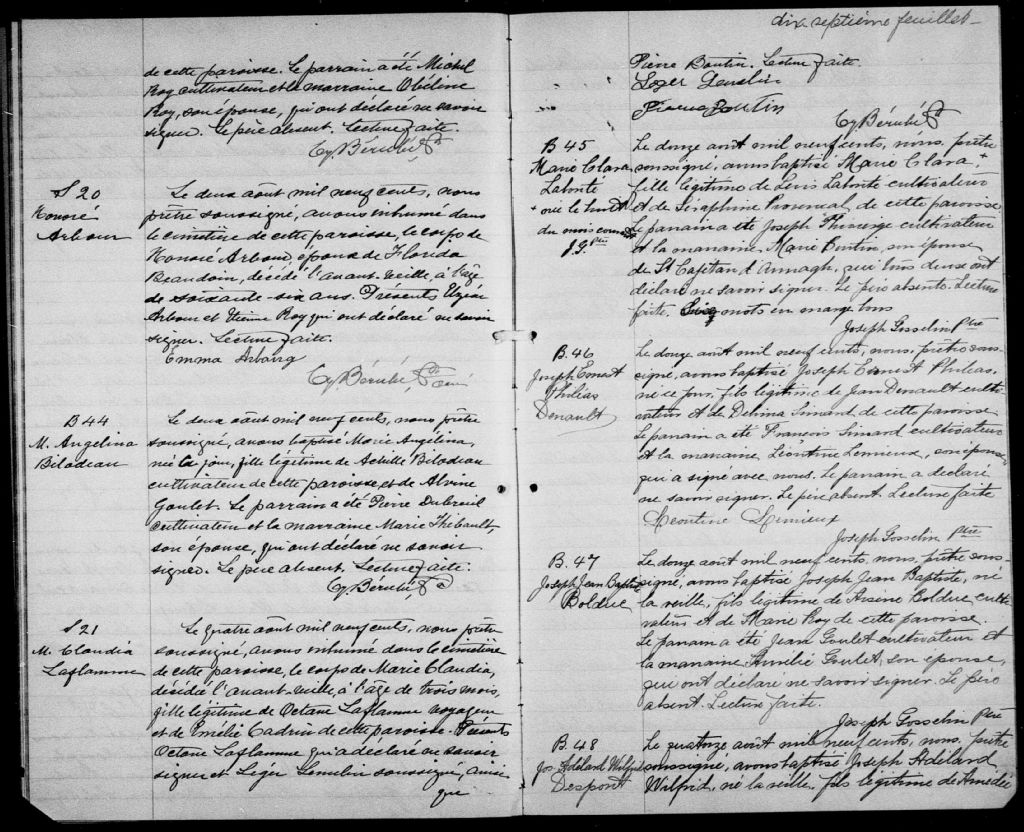 de cette paroisse. Le parrain a été Michel
Roy cultivateur et la marraine Obéline
Roy, son épouse, qui ont déclaré ne savoir
signer. Le père absent. Lecture faite.
Cy. Bérubé Ptre
S 20
Honoré
Arbour
Le deux août mil neuf cents, nous
prêtre soussigné, avons inhumé dans
le cimetière de cette paroisse, le corps de
Honoré Arbour, époux de Florida
Beaudoin, décédé l'avant-veille, à l'âge
de soixante-six ans. Présents
Arbour et Etienne Roy qui ont déclaré ne savoir
signer. Lecture faite.
Emma
Cy. Bérubé Ptre curé
B 44
M. Angelina
Bilodeau
Le deux août mil neuf cents, nous prêtre
soussigné, avons baptisé Marie Angélina,
née ce jour, fille légitime de Achille Bilodeau
cultivateur de cette paroisse, et de Alvine
Goulet. Le parrain a été Pierre Dubreuil
cultivateur et la marraine Marie Thibault,
son épouse, qui ont déclaré ne savoir
signer. Le père absent. Lecture faite.
Cy. Bérubé Ptre
S 21
M. Claudia
Laflamme
Le quatre août mil neuf cents, nous prêtre
soussigné, avons inhumé dans le cimetière
de cette paroisse, le corps de Marie Claudia,
décédée l'avant-veille, à l'âge de trois mois,
fille légitime de Octave Laflamme voyageur
et de Emélie Cadrin de cette paroisse. Présents
Octave Laflamme qui a déclaré ne savoir
signer et Léger soussigné, ainsi
que
dix septième feuillet
Pierre Boutin. Lecture faite.
Pierre Boutin
Cy. Bérubé Ptre
B 45
Marie Clara
Labonté
+ née le
du mois courant
J.G. Ptre
Le douze août mil neuf cents, nous, prêtre
soussigné, avons baptisé Marie Clara, +
fille légitime de Louis Labonté cultivateur
et de Séraphine Provencal, de cette paroisse
Le parrain a été Joseph Thivierge cultivateur
et la marraine Marie Boutin, son épouse
de St Cajetan d'Armagh, qui tous deux ont
déclaré ne savoir signer. Le père absent. Lecture
faite. mots en marge bons
Joseph Gosselin Ptre
B. 46
Joseph Ernest
Philéas
Denault
Le douze août mil neuf cents, nous, prêtre sous-
signé, avons baptisé Joseph Ernest Philéas,
né ce jour, fils légitime de Jean Denault culti-
vateur et de Delvina Simard de cette paroisse
Le parrain a été François Simard cultivateur
et la marraine Léontine Lemieux, son épouse
qui a signé avec nous. Le parrain a déclaré
ne savoir signer. Le père absent. Lecture faite
Leontine Lemieux
Joseph Gosselin Ptre
B. 47
Joseph Jean Baptiste
Bolduc
Le douze août mil neuf cents, nous, prêtre sous-
signé, avons baptisé Joseph Jean Baptiste, né
la veille, fils légitime de Arsène Bolduc culti-
vateur et de Marie Roy de cette paroisse.
Le parrain a été Jean Goulet cultivateur et
la marraine Amélie Goulet, son épouse,
qui ont déclaré ne savoir signer. Le père
absent. Lecture faite.
Joseph Gosselin Ptre
B. 48
Jos. Adélard Wilfrid
Despont
Le quatorze août mil neuf cents, nous, prêtre
soussigné, avons baptisé Joseph Adélard
Wilfrid, né la veille, fils légitime de Amédée